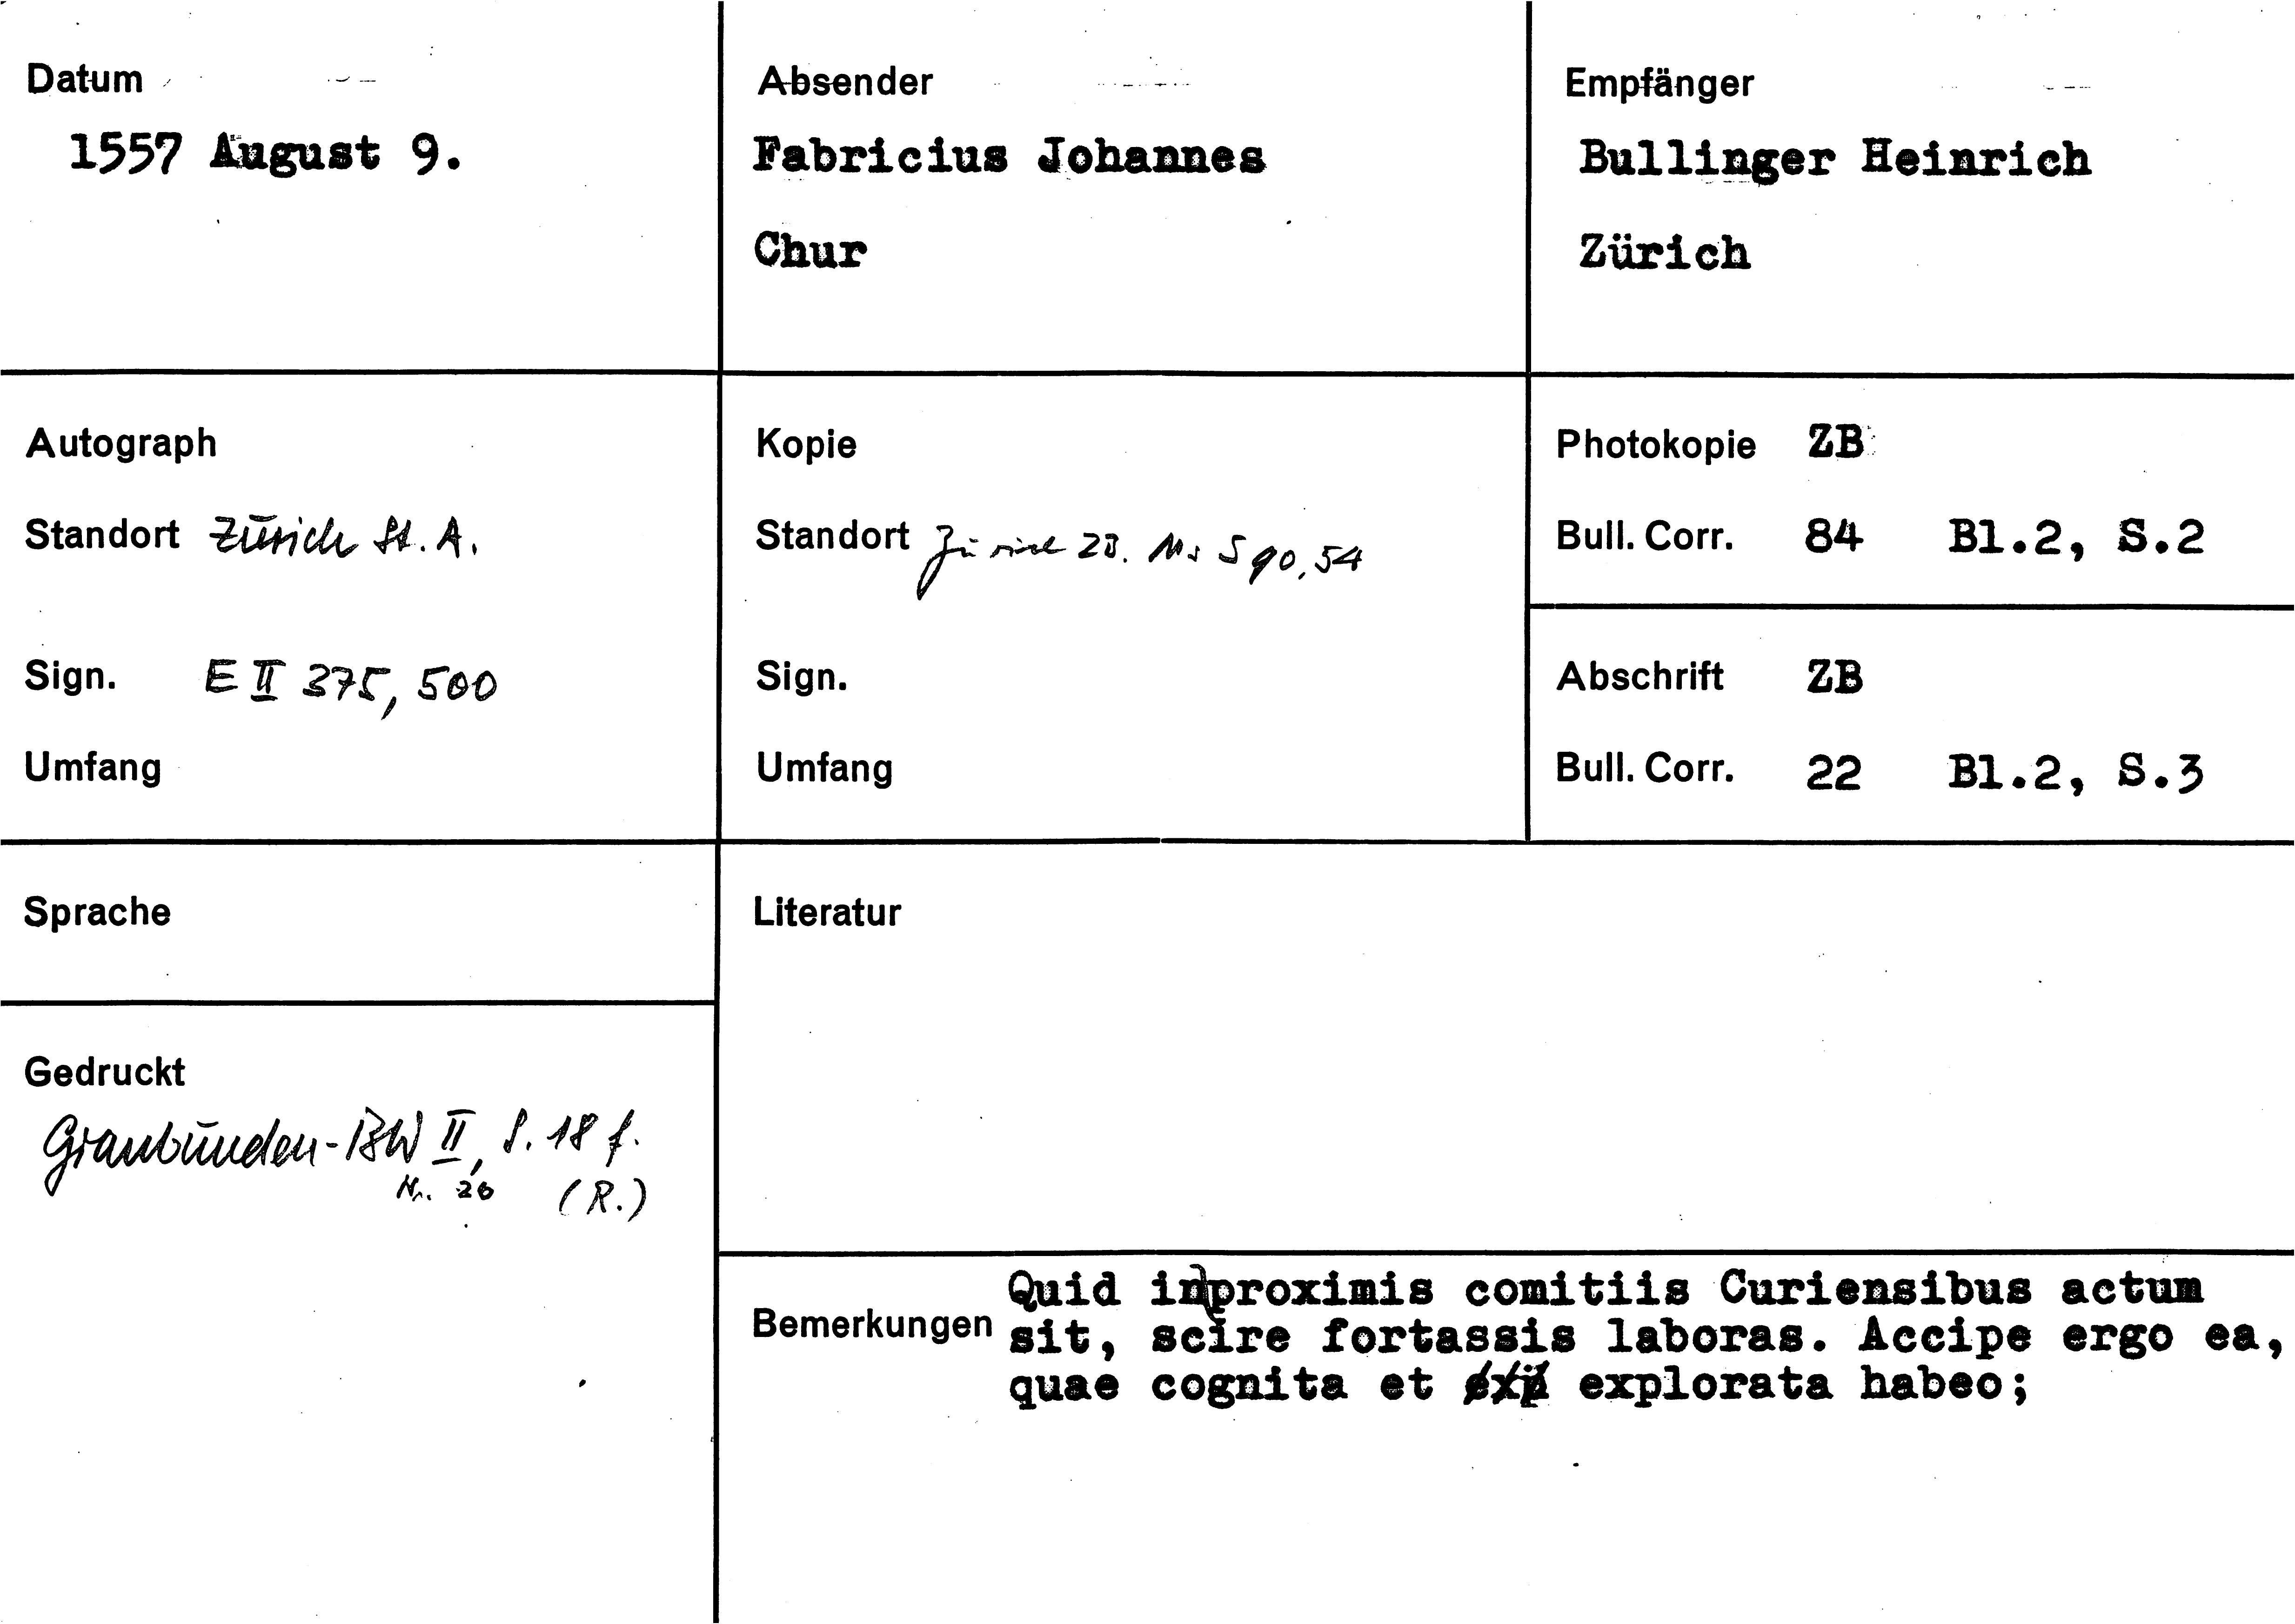 Datum
1557 August 9.
Absender
Fabricius Johannes
Chur
Empfänger
Bullinger Heinrich
Zürich
Autograph
Standort Zürich St. A.
Sign. E II 375, 500
Umfang
Kopie
Standort Zürich ZB. Ms S 90, 54
Sign.
Umfang
Photokopie ZB
Bull. Corr. 84 Bl.2, S.2
Abschrift ZB
Bull. Corr. 22 Bl.2, S.3
Sprache
Gedruckt
Graubünden-BW II, S. 18 f.
Nr. 26 (R.)
Literatur
Bemerkungen
Quid in proximis comitiis Curiensibus actum
sit, scire fortassis laboras. Accipe ergo ea,
quae cognita et explorata habeo;